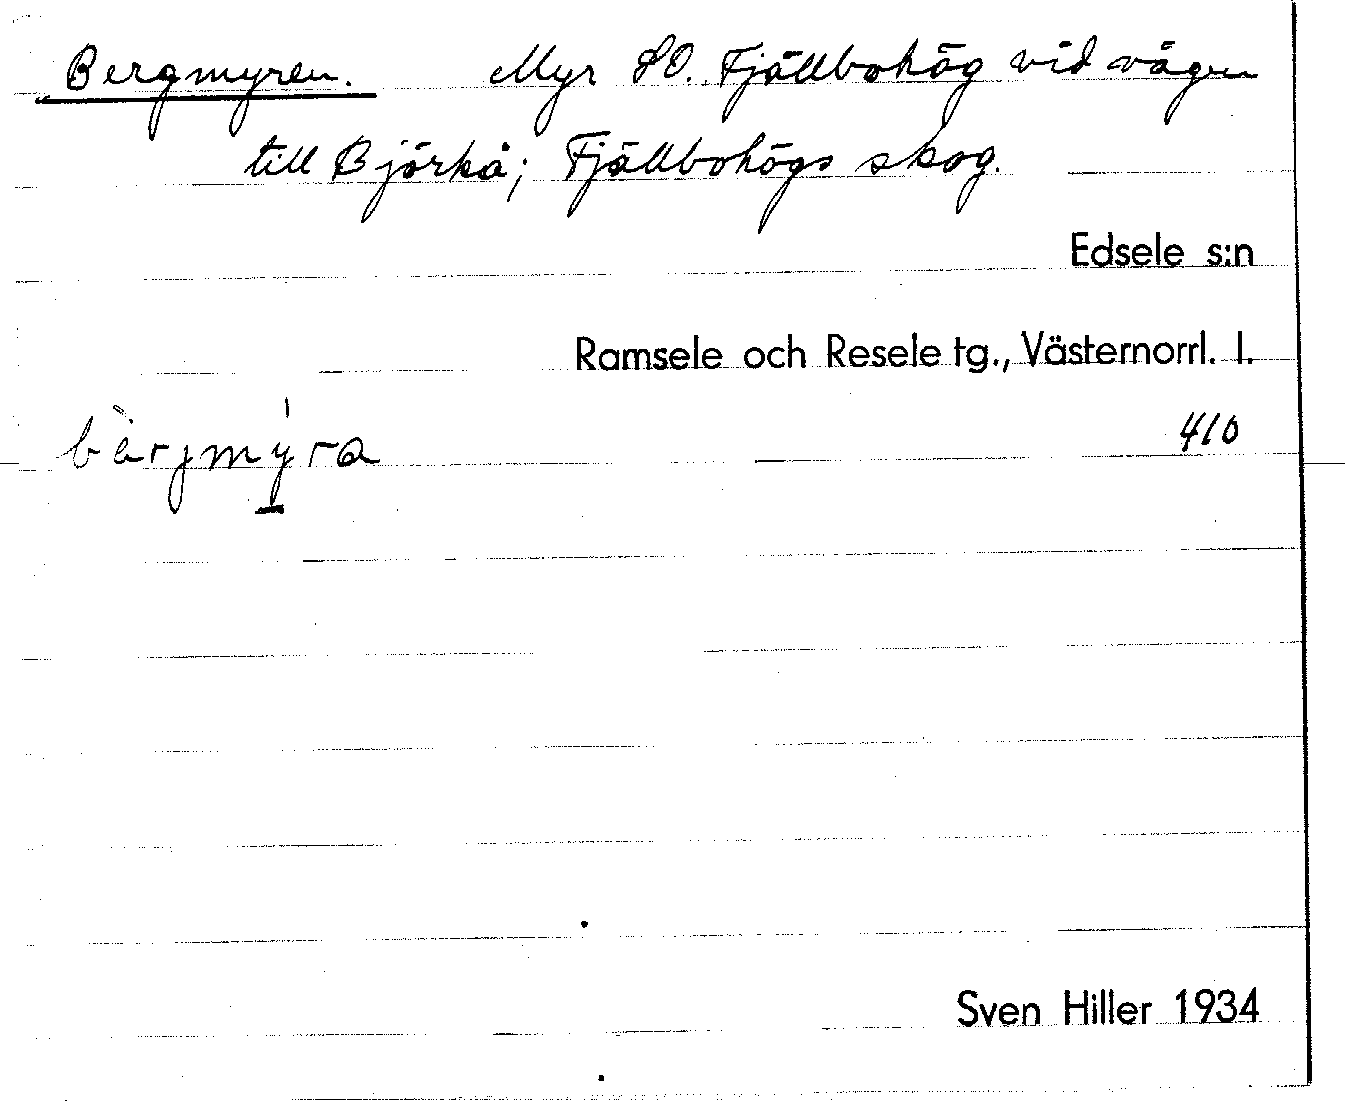 Bergmyren. Myr SO. Fjällbohög vid vägen
till Björkå; Fjällbohögs skog.
Edsele s:n
Ramsele och Resele tg., Västernorrl. l.
bàrjmýra 410
Sven Hiller 1934